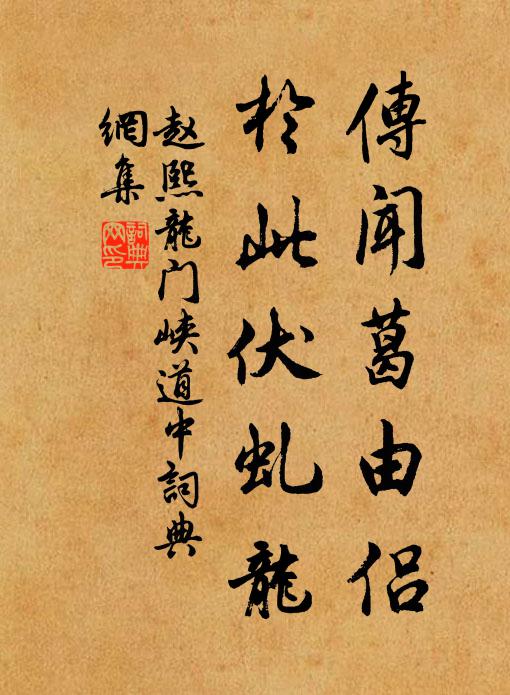 傳闻葛由侣
於此伏虬龍
赵熙龍门峡道中詞典
網集
詞典網印